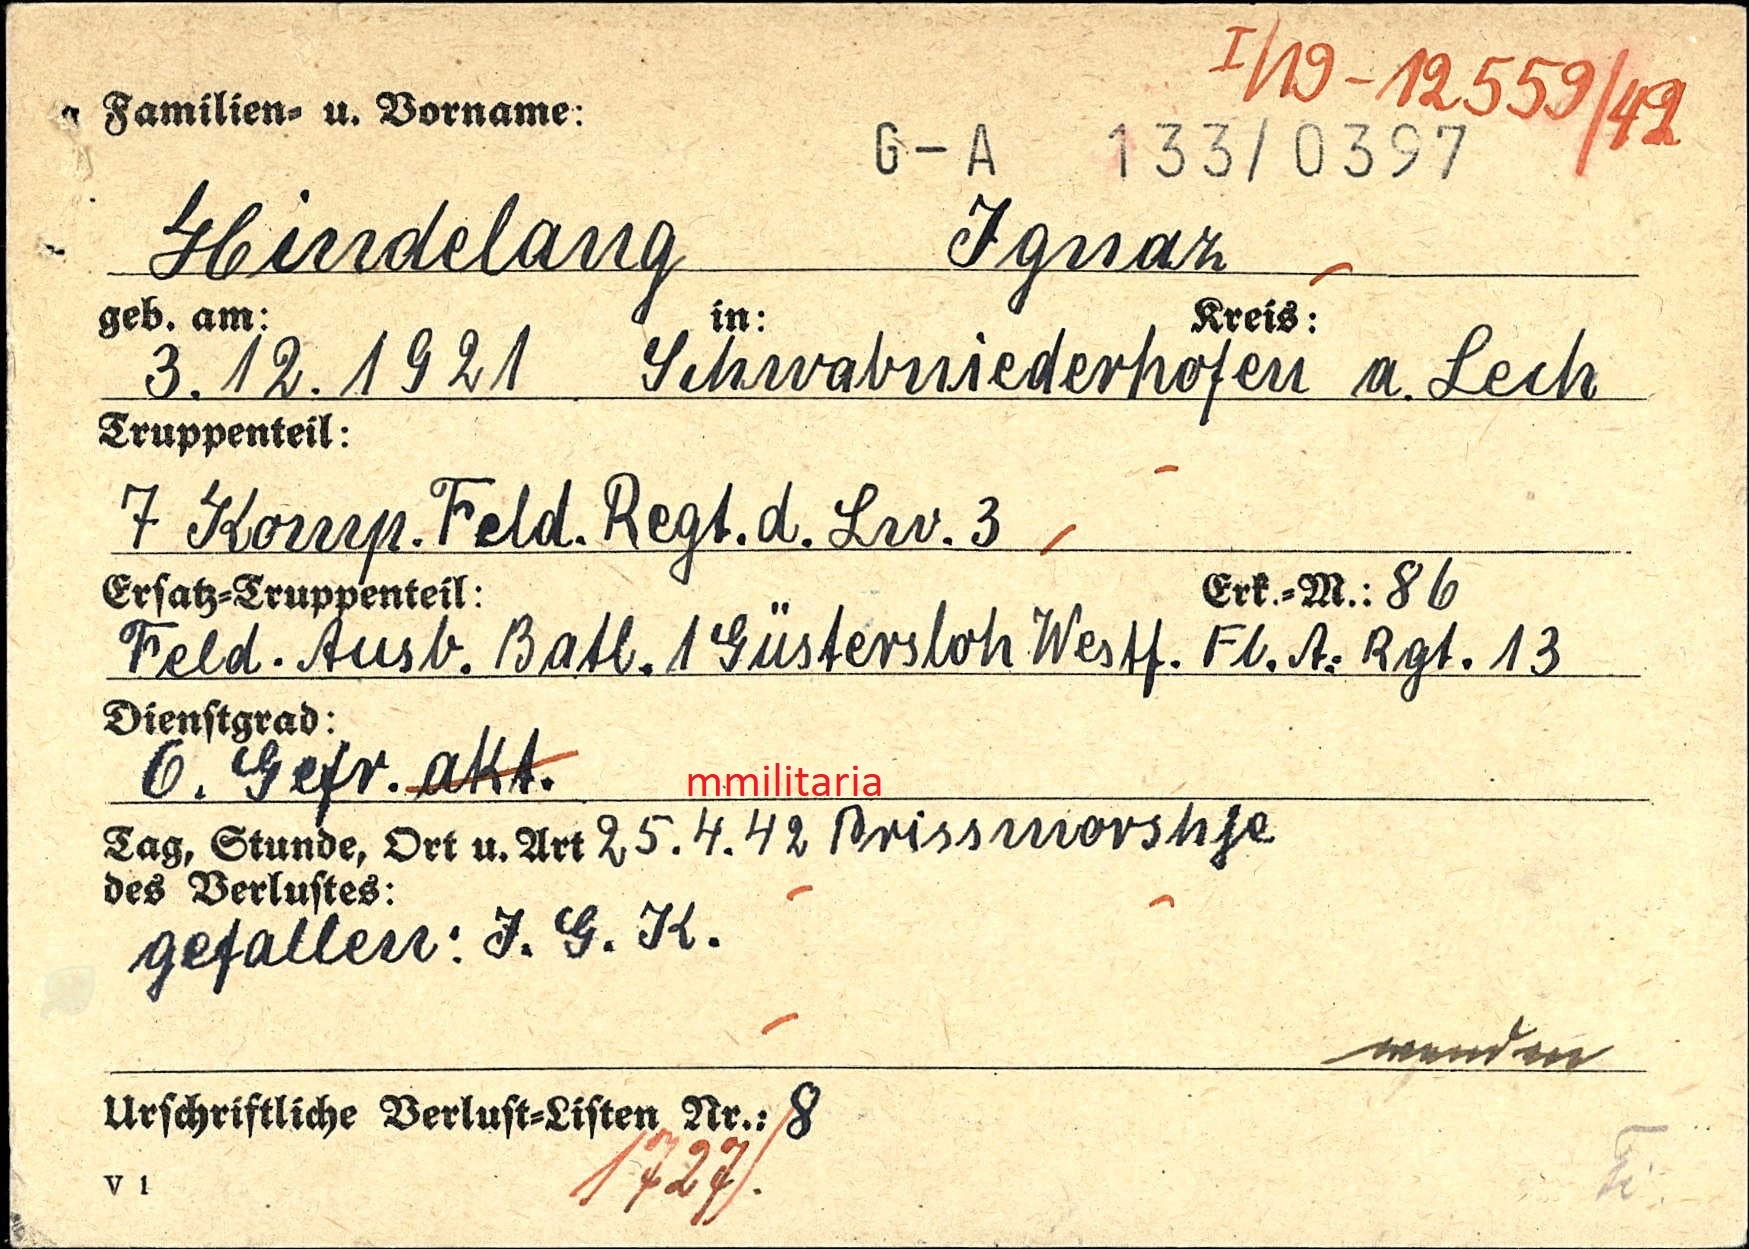 I/19-12559/42
Familien- u. Vorname:
G-A 133/0397
Hindelang Ignaz
geb. am: in: Kreis:
3.12.1921 Schwabniederhofen a. Lech
Truppenteil:
7 Komp. Feld. Regt. d. Lw. 3
Ersatz-Truppenteil: Erk.-M.: 86
Feld. Ausb. Batl. 1 Güstersloh Westf. Fl. A. Rgt. 13
Dienstgrad:
O. Gefr. akt.
mmilitaria
Tag, Stunde, Ort u. Art 25.4.42
des Verlustes:
gefallen: I. G. K.
wenden
Urschriftliche Verlust-Listen Nr.: 8
1727/.
V 1